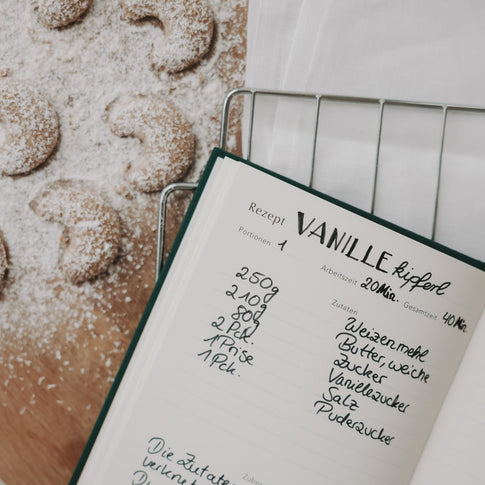 Rezept VANILLE kipferl
Portionen 1
Arbeitszeit 20 Min. Gesamtzeit 40 Min
Zutaten
250g Weizenmehl
210g Butter, weiche
80g Zucker
2 Pck. Vanillezucker
1 Prise Salz
1 Pck. Puderzucker
Die Zutaten
verknete